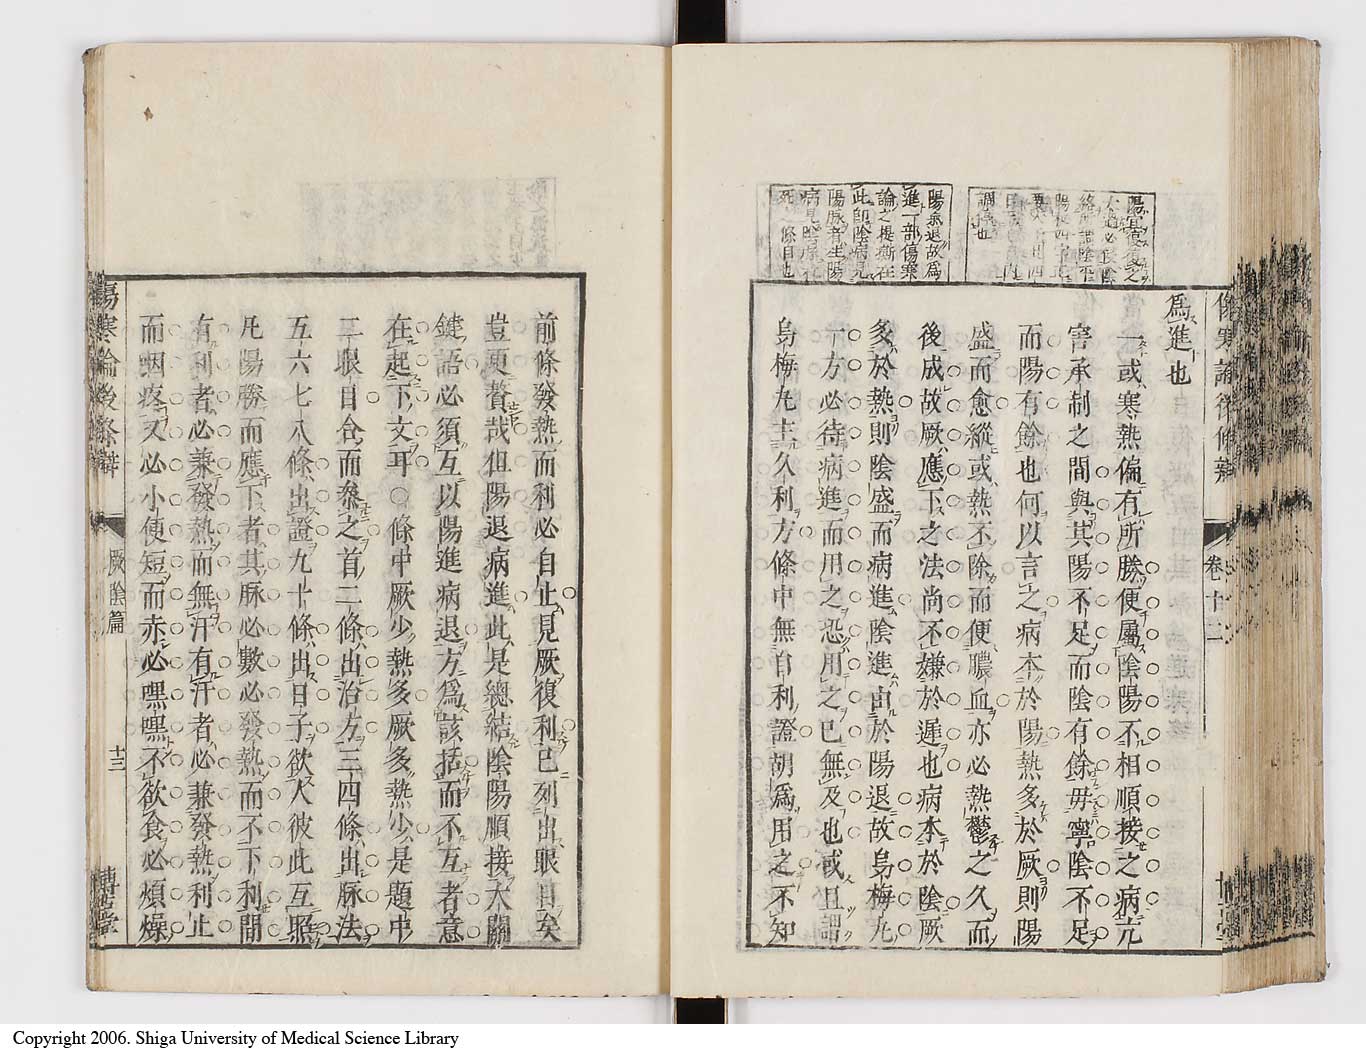 傷寒論後條辨
卷十二
爲進也
一或寒熱偏有所勝便屬陰陽不相順接之病亢
害承制之間與其陽不足而陰有餘毋寧陰不足
而陽有餘也何以言之病本於陽熱多於厥則陽
盛而愈縱或熱不除而便膿血亦必熱鬱之久而
後成故厥應下之法尚不嫌於遲也病本於陰厥
多於熱則陰盛而病進陰進由於陽退故烏梅九
一方必待病進而用之恐用之已無及也或且謂
烏梅九主久利方條中無自利證胡爲用之不知
陽乘退故爲
進一部傷寒
論之提衡在
此即陰病見
陽脉者生陽
病見陰脉者
死一條自也
前條發熱而利必自止見厥復利已列出眼目矣
豈更贅哉但陽退病進此是總結陰陽順接大關
鍵語必須互以陽進病退方爲該括而不互者意
在起下文耳○條中厥少熱多厥多熱少是題中
二眼目合而叅之首二條出治方三四條出脉法
五六七八條出證九十條出日子欲人彼此互照
凡陽勝而應下者其脉必數必發熱而不下利間
有利者必兼發熱而無汗有汗者必兼發熱利止
而咽疼又必小便短而赤必嘿嘿不欲食必煩燥
傷寒論後條辨
厥陰篇
十三
博古堂
Copyright 2006. Shiga University of Medical Science Library